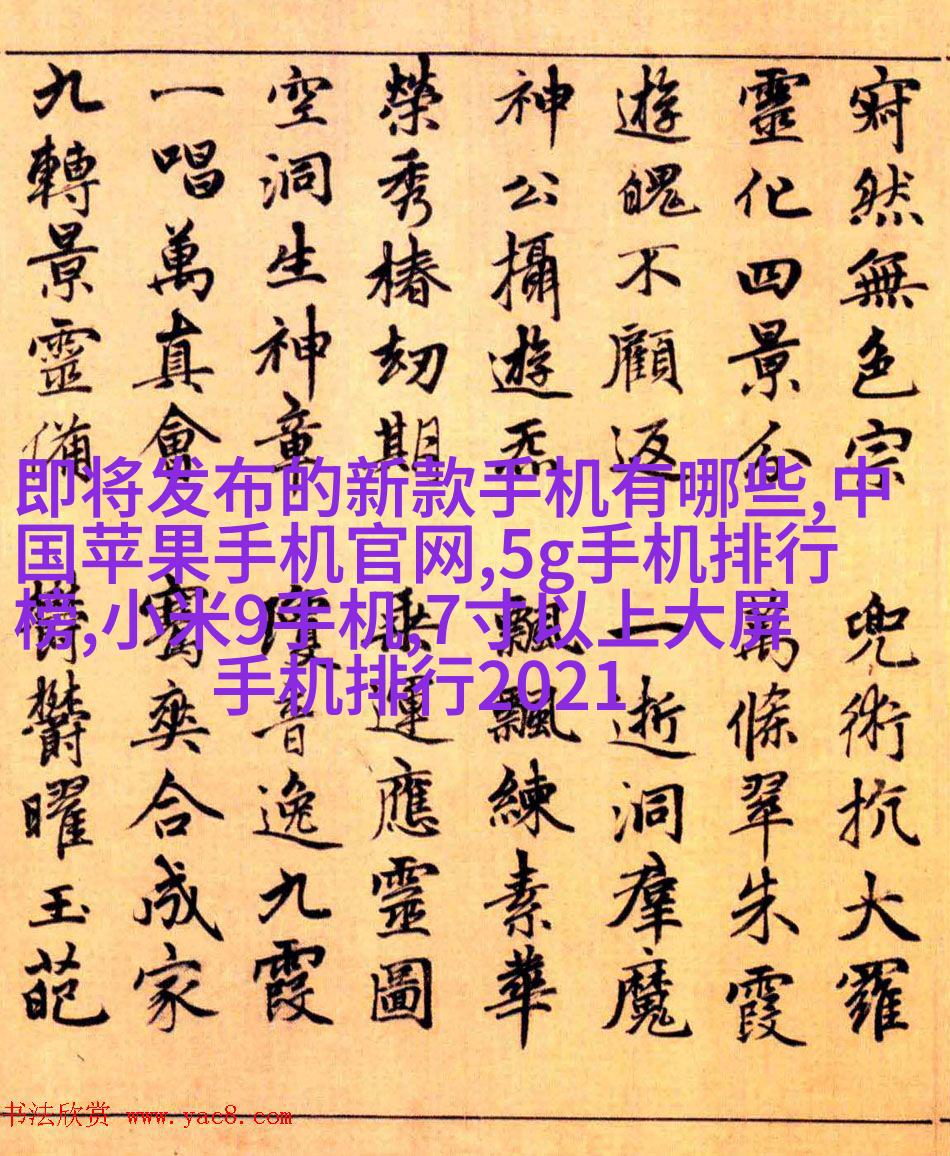 寂然無色宗 兜術抗大羅
靈化四景分 萬條翠朱霞
遊魄不顧返 一逝洞群魔
神公攝遊炁 飄飄練素華
榮秀椿劫期 乘運應靈圖
空洞生神章 音逸九霞
一唱萬真會 騫爽合成家
九轉景靈備 欝欝曜玉葩
即将发布的新款手机有哪些,中
国苹果手机官网,5g手机排行
榜,小米9手机,7寸以上大屏
手机排行2021
书法欣赏 www.yac8.com